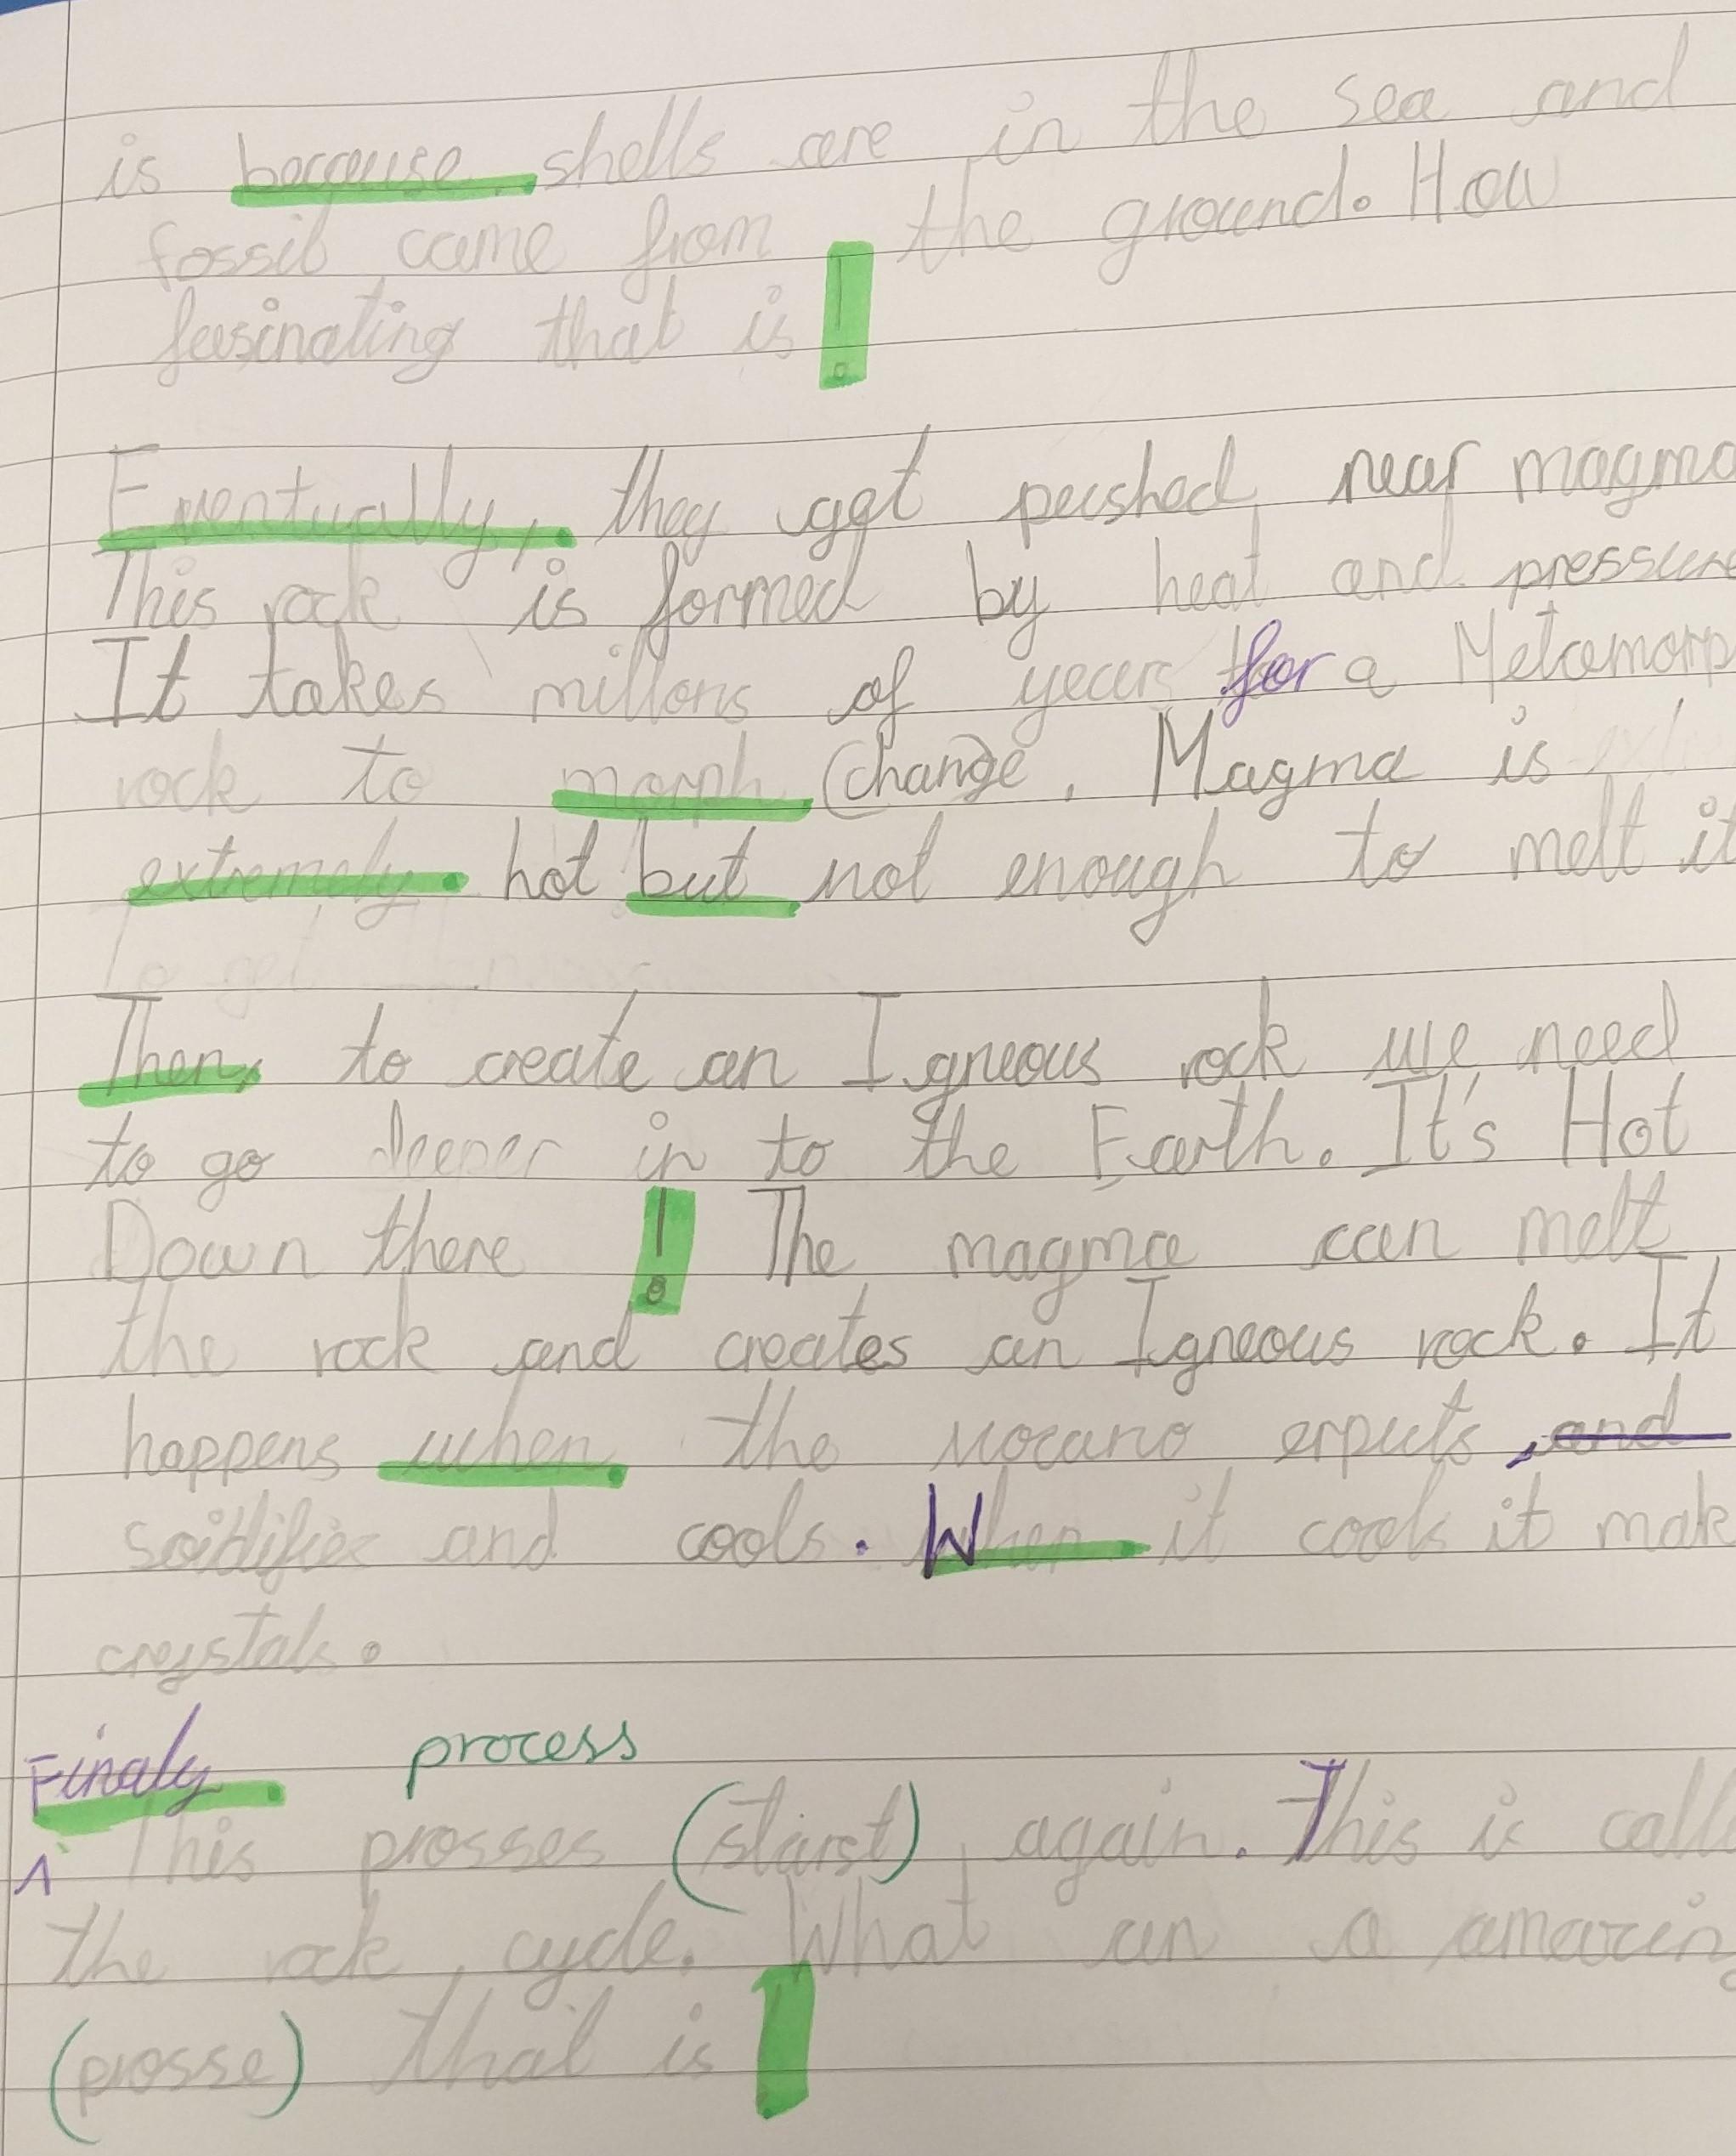 is because shells are in the sea and
fossil came from the ground. How
fasinating that is!
Eventually, they get pushed near magma
This rock is formed by heat and pressure
It takes millons of years for a Metamorp
rock to morph (change). Magma is
extremely hot but not enough to melt it
To get
Then, to create an Igneous rock we need
to go deeper in to the Earth. It's Hot
Down there! The magma can melt
the rock and creates an Igneous rock. It
happens when the vocano erputs, and
and cools. When it cools it mak
crystals.
Finaly process
This prosses (starst) again. This is call
the rock cycle. What an a amazing
(prosse) that is!